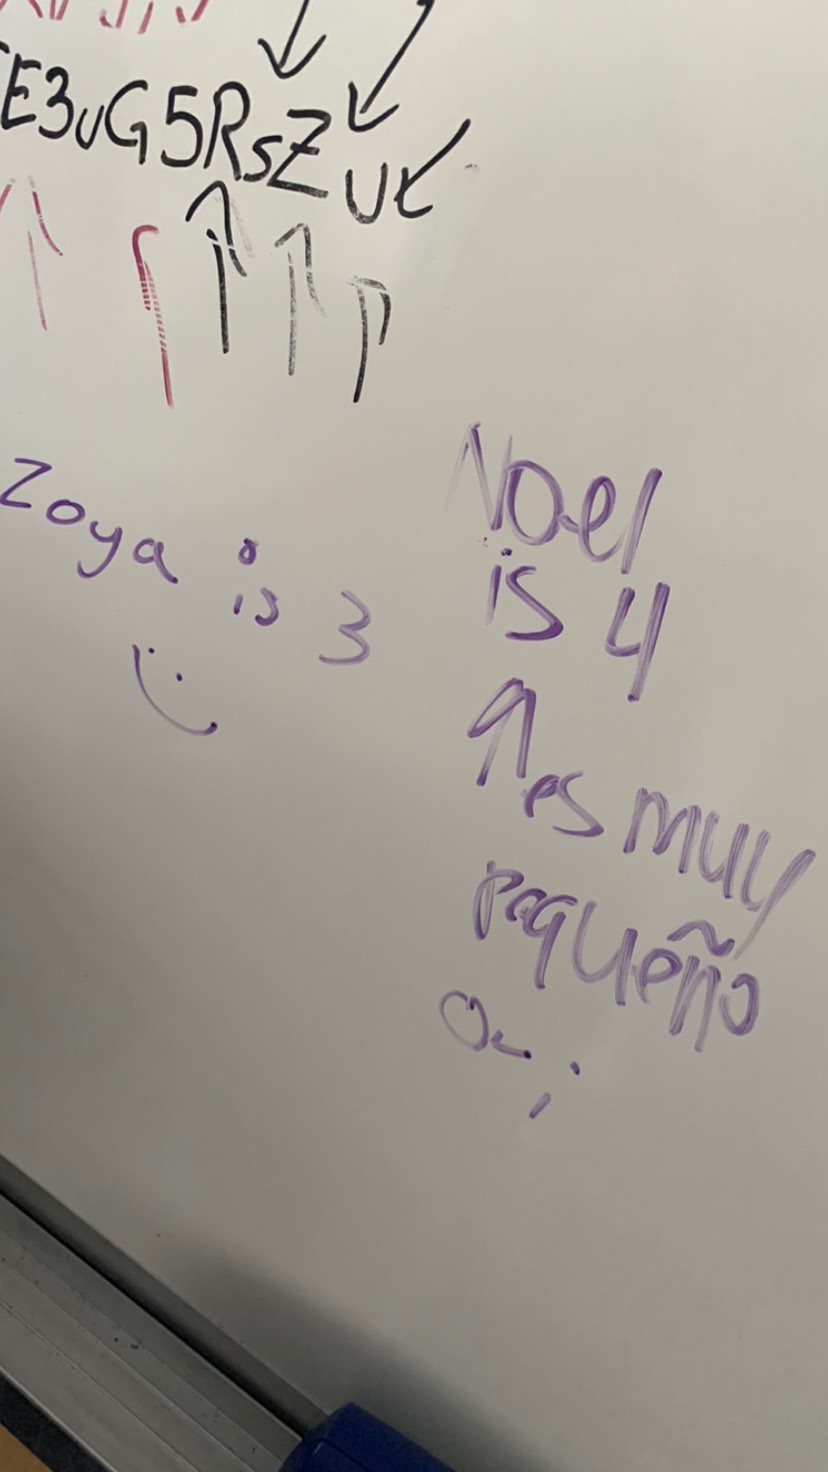 E3uG5RsZut
Zoya is 3
:)
Noel
is 4
↑ es muy
pequeño